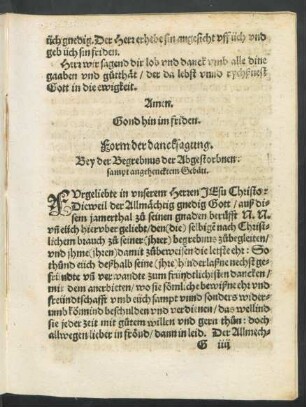 üch gnedig. Der Herr erhebe sin angesicht vff üch vnd
geb üch sin friden.
Herr wir sagend dir lob vnd danck vmb alle dine
gaaben vnd gůtthåt / der da lebst vnnd
Gott in die ewigkeit.
Amen.
Gond hin im friden.
Form der dancksagung.
Bey der Begrebnus der Abgestorbnen:
sampt angehencktem Gebått.
Vrgeliebte in vnserem Herren JEsu Christo:
Dieweil der Allmåchtig gnedig Gott / auß di-
sem jamerthal zů seinen gnaden berüfft N. N.
vñ eüch hierüber geliebt / den (die) selbige nach Christ-
lichem brauch zů seiner (jhrer) begrebnus zůbegleiten /
vnd jhme (jhren) damit zůbeweisen die letste eehr: So
thůnd eüch deßhalb seine (jhre) hinderlaßne nechst ge-
fründte vñ verwandte zum fründtlichisten dancken /
mit dem anerbieten / wo sie sömliche bewisne eehr vnd
freündtschafft vmb eüch sampt vnnd sonders wider-
umb könnind beschulden vnd verdienen / das wellind
sie jeder zeit mit gůtem willen vnd gern thůn: doch
allwegen lieber in fröud / dann in leid. Der Allmech-
G iiij